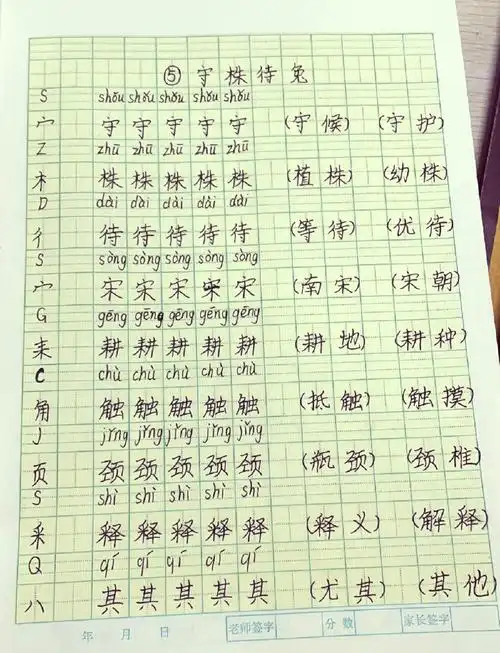 ⑤守株待兔
S shǒu shǒu shǒu shǒu shǒu
宀 守 守 守 守 守 (守候) (守护)
Z zhū zhū zhū zhū zhū
木 株 株 株 株 株 (植株) (幼株)
D dài dài dài dài dài
彳 待 待 待 待 待 (等待) (优待)
S sòng sòng sòng sòng sòng
宀 宋 宋 宋 宋 宋 (南宋) (宋朝)
G gēng gēng gēng gēng gēng
耒 耕 耕 耕 耕 耕 (耕地) (耕种)
C chù chù chù chù chù
角 触 触 触 触 触 (抵触) (触摸)
J jǐng jǐng jǐng jǐng jǐng
页 颈 颈 颈 颈 颈 (瓶颈) (颈椎)
S shì shì shì shì shì
釆 释 释 释 释 释 (释义) (解释)
Q qí qí qí qí qí
八 其 其 其 其 其 (尤其) (其他)
年 月 日 老师签字 分数 家长签字